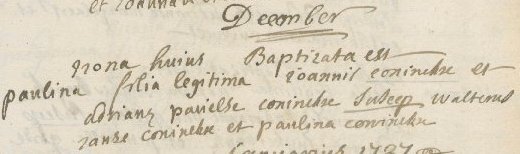 et Joanna
December
nona huius Baptizata est
paulina filia legitima Joannis coninckx et
adrianæ pauielse coninckx Susep Walterus
Janse coninckx et paulina coninckx
Januarius 1727